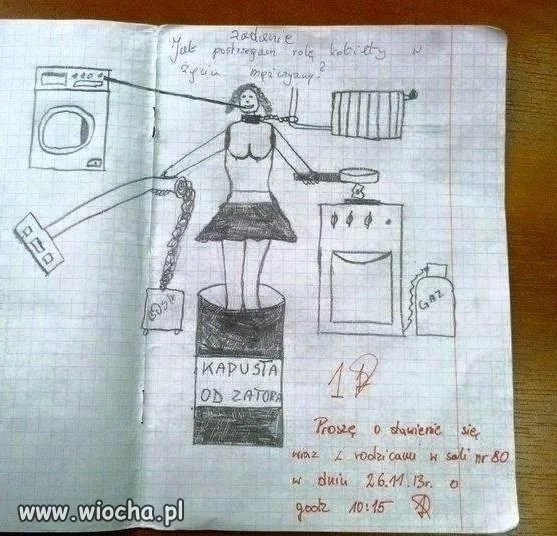 zadanie
Jak postrzegam rolę kobiety w
życiu mężczyzny?
GAZ
KAPUSTA
OD ZATORA
1
Proszę o stawienie się
wraz z rodzicami w sali nr 80
w dniu 26.11.13r. o
godz 10:15
www.wiocha.pl